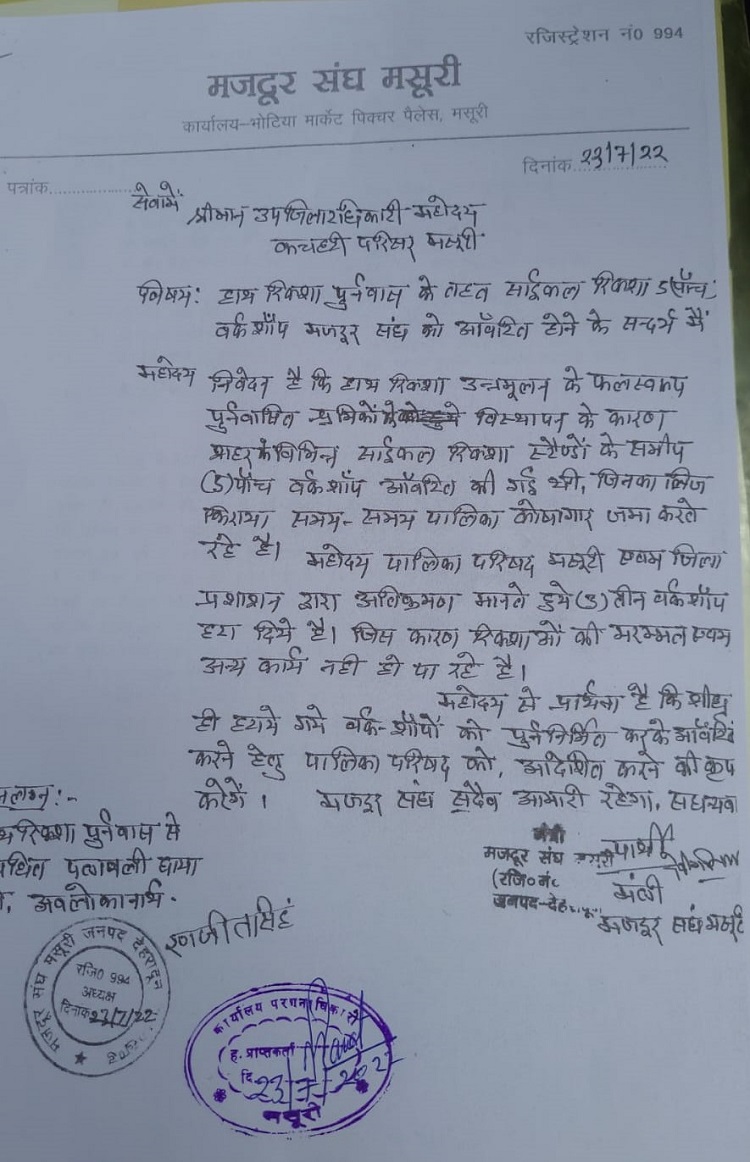 रजिस्ट्रेशन नं0 994
मजदूर संघ मसूरी
कार्यालय–भोटिया मार्केट पिक्चर पैलेस, मसूरी
पत्रांक.................... दिनांक 23/7/22
सेवामें
श्रीमान उपजिलाधिकारी महोदय
कचहरी परिसर मसूरी
विषय: हाथ रिक्शा पुर्नवास के तहत साईकल रिक्शा 5 पॉंच
वर्कशॉप मजदूर संघ को आंवटित होने के सन्दर्भ में
महोदय निवेदन है कि हाथ रिक्शा उन्नमूलन के फलस्वरूप
पुर्नवासित श्रमिकों विस्थापन के कारण
शहर के विभिन्न साईकल रिक्शा स्टैण्डों के समीप
(5) पॉंच वर्कशॉप आंवटित की गई थी, जिनका लिज
किराया समय-समय पालिका कोषागार जमा करते
रहे है। महोदय पालिका परिषद मसूरी एवम जिला
प्रशाशन द्वारा अतिक्रमण मानते हुये (3) तीन वर्कशॉप
हटा दिये है। जिस कारण रिक्शाओं की मरम्मत एवम
अन्य कार्य नही हो पा रहे है।
महोदय से प्रार्थना है कि शीघ्र
ही हटाये गये वर्क-शॉपों को पुर्ननिर्मित करके आंवटित
करने हेतु पालिका परिषद को, आदेशित करने की कृपा
करेगें। मजदूर संघ सदैव आभारी रहेगा, सधन्यवा
संलग्न:-
रिक्शा पुर्नवास से
पत्रावली छाया
अवलोकनार्थ.
मंत्री
मजदूर संघ मसूरी प्रार्थी
(रजि० नं०
जनपद-देह
मंत्री
मजदूर संघ मसूरी
रणजीत सिंह
मजदूर संघ मसूरी जनपद देहरादून
रजि0 994
अध्यक्ष
दिनांक 23/7/22
कार्यालय परगनाधिकारी
ह. प्राप्तकर्ता
दि. 23
मसूरी